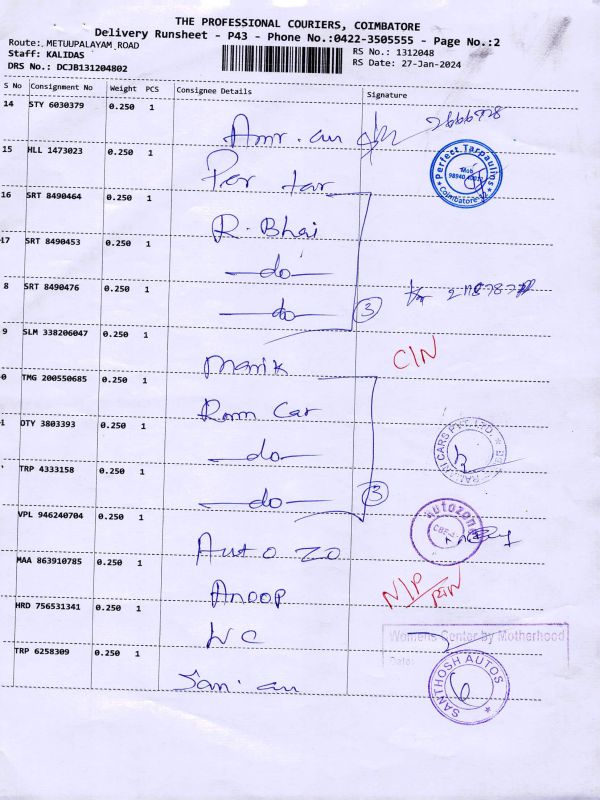 THE PROFESSIONAL COURIERS, COIMBATORE
Delivery Runsheet - P43 - Phone No.:0422-3505555 - Page No.:2
Route: METUUPALAYAM ROAD RS No.: 1312048
Staff: KALIDAS RS Date: 27-Jan-2024
DRS No.: DCJB131204802
S No Consignment No Weight PCS Consignee Details Signature
14 STY 6030379 0.250 1
Amr. au
15 HLL 1473023 0.250 1
Per tar
Perfect Tarpaulins Mob Coimbatore
16 SRT 8490464 0.250 1
R. Bhai
17 SRT 8490453 0.250 1
do
8 SRT 8490476 0.250 1
do 3
9 SLM 338206047 0.250 1
Manik C/N
0 TMG 200550685 0.250 1
Ram Car
1 OTY 3803393 0.250 1
do CARS PVT. LTD
TRP 4333158 0.250 1
do 3
VPL 946240704 0.250 1
Auto zo autozone CBE
MAA 863910785 0.250 1
Anoop N/P
HRD 756531341 0.250 1
WC Womens Center by Motherhood
Date:
TRP 6258309 0.250 1
San. au SANTHOSH AUTOS